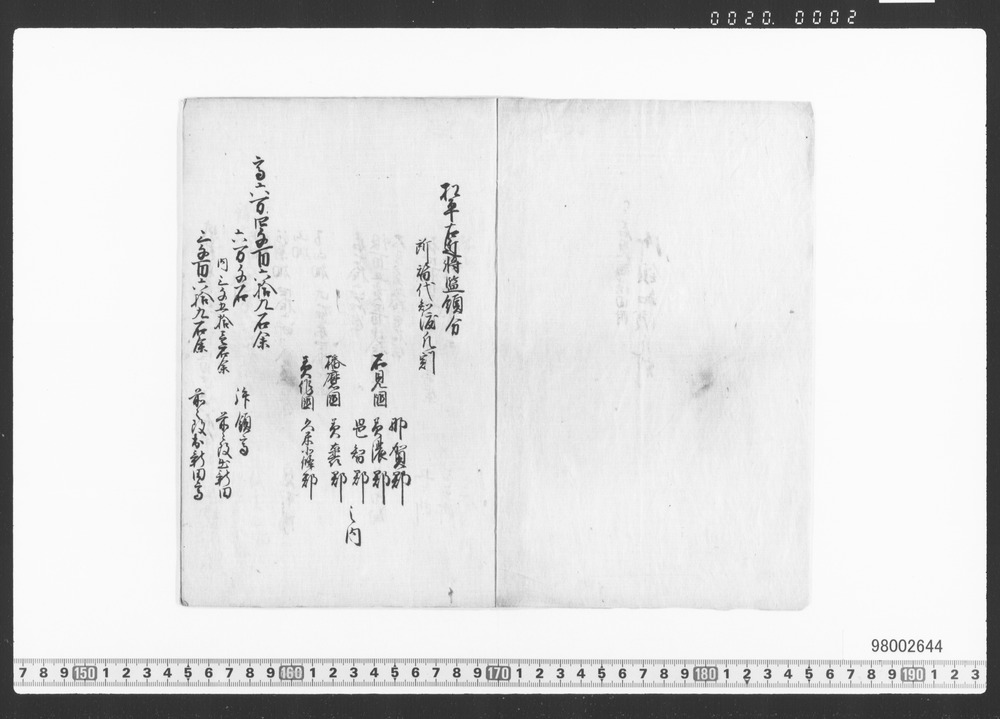 0020. 0002
松平右近将監領分
所替代知渡凡割
那賀郡
石見国 美濃郡
邑智郡
播磨国 美嚢郡
美作国 久米北條郡
之内
高六万四千百六拾九石余
六万千石 拝領高
内三千五拾壱石余 前々改出新田
三千百六拾九石余 前々改出新田高
98002644
7 8 9 150 1 2 3 4 5 6 7 8 9 160 1 2 3 4 5 6 7 8 9 170 1 2 3 4 5 6 7 8 9 180 1 2 3 4 5 6 7 8 9 190 1 2 3